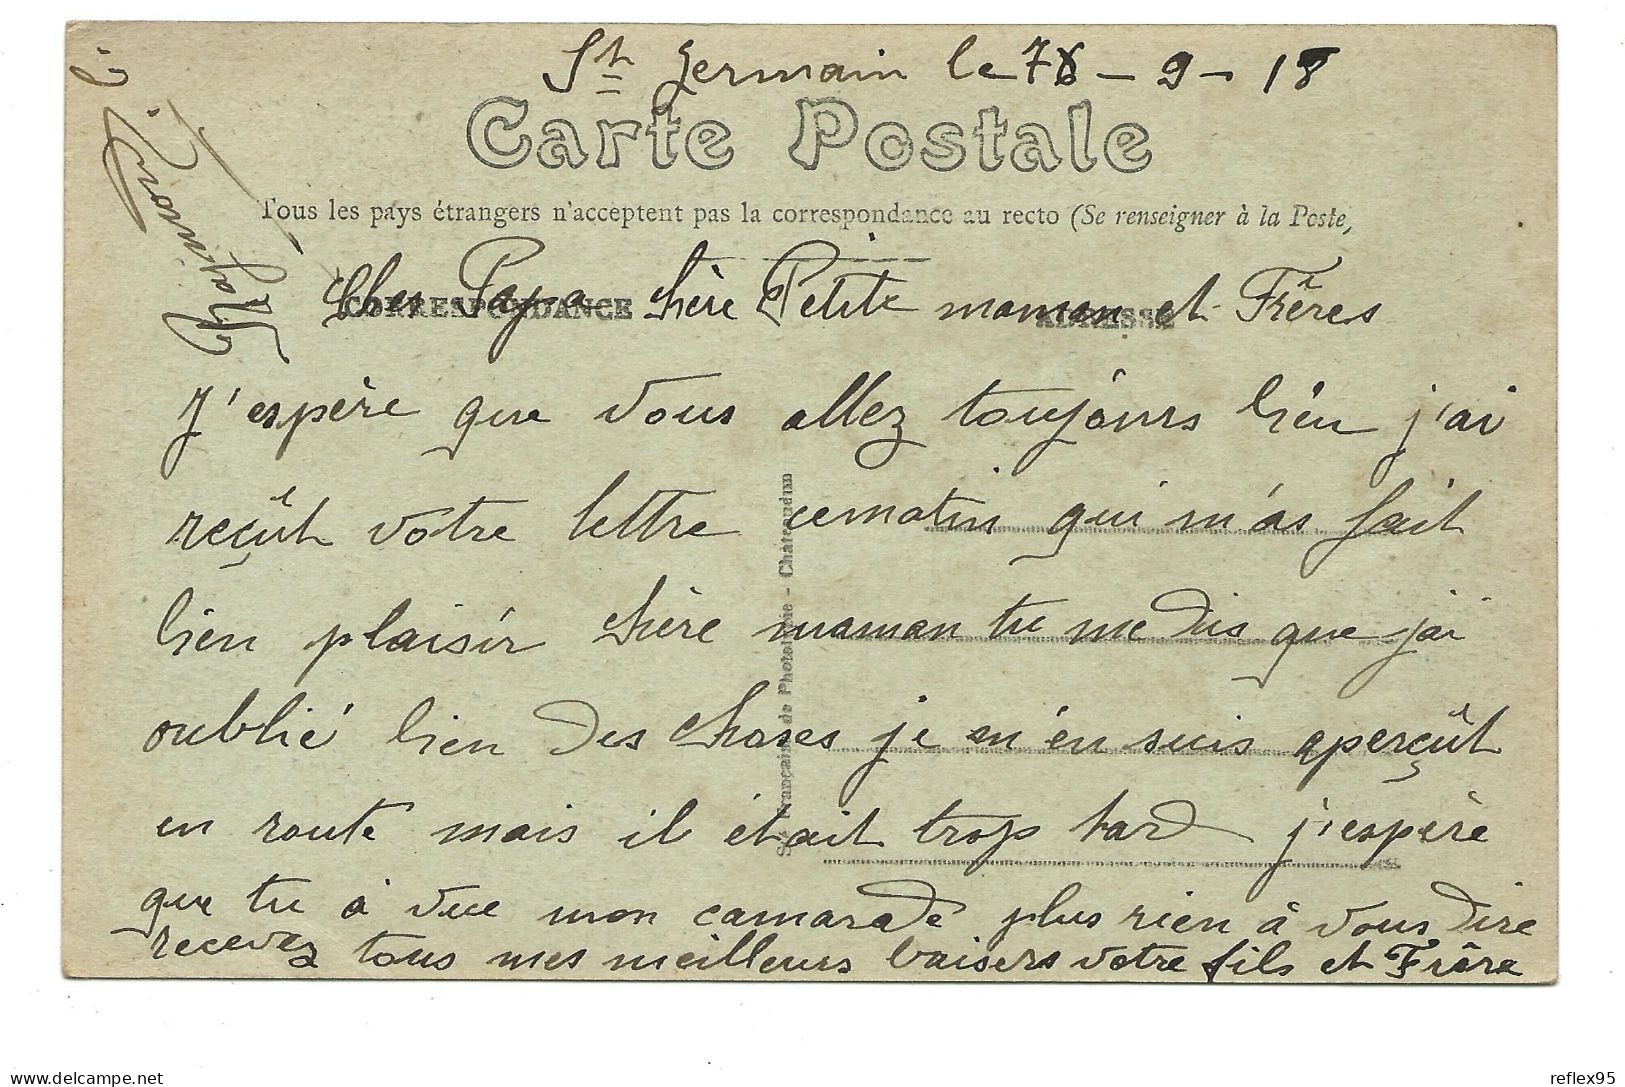 St Germain le 78 - 9 - 18
Carte Postale
Tous les pays étrangers n'acceptent pas la correspondance au recto (Se renseigner à la Poste,
CORRESPONDANCE
ADRESSE
Cher Papa chère Petite maman et Frères
J'espère que vous allez toujours bien j'ai
reçût votre lettre cematin qui m'as fait
bien plaisir chère maman tu me dis que j'ai
oublié bien des choses je m'en suis aperçût
en route mais il était trop tard j'espère
que tu à vue mon camarade plus rien à vous dire
recevez tous mes meilleurs baisers votre fils et Frère
Sté Française de Phototypie - Chateaudun
delcampe.net
reflex95